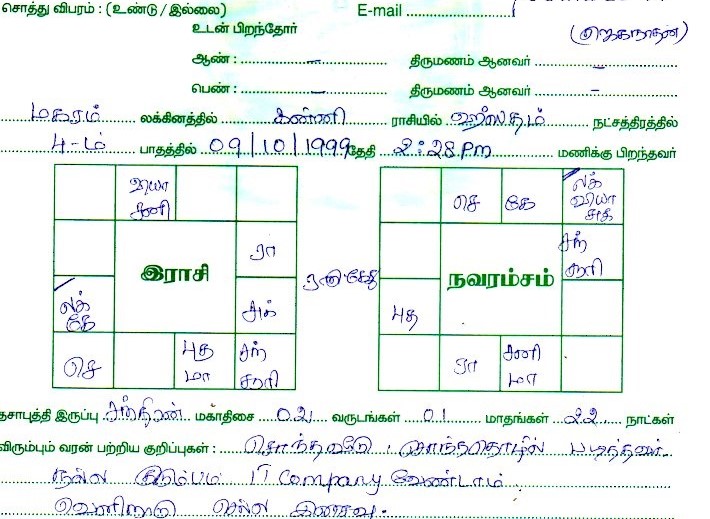 சொத்து விபரம் : (உண்டு / இல்லை) E-mail
உடன் பிறந்தோர்
ஆண் : – திருமணம் ஆனவர் –
பெண் : – திருமணம் ஆனவர் –
மகரம் லக்கினத்தில் கன்னி ராசியில் ஹஸ்தம் நட்சத்திரத்தில்
4-ம் பாதத்தில் 09/10/1999 தேதி 2:28 Pm மணிக்கு பிறந்தவர்
வியா
சனி
ரா
இராசி
லக்
கே
சுக்
செ
புத
மா
சந்
சூரி
செ கே லக்
வியா
சுக்
சந்
சூரி
நவாம்சம்
புத
ரா சனி
மா
தசாபுத்தி இருப்பு சந்திரன் மகாதிசை 02 வருடங்கள் 01 மாதங்கள் 22 நாட்கள்
விரும்பும் வரன் பற்றிய குறிப்புகள் : சொந்தவீடு சொந்ததொழில்
நல்ல குடும்பம் IT Company வேண்டாம்